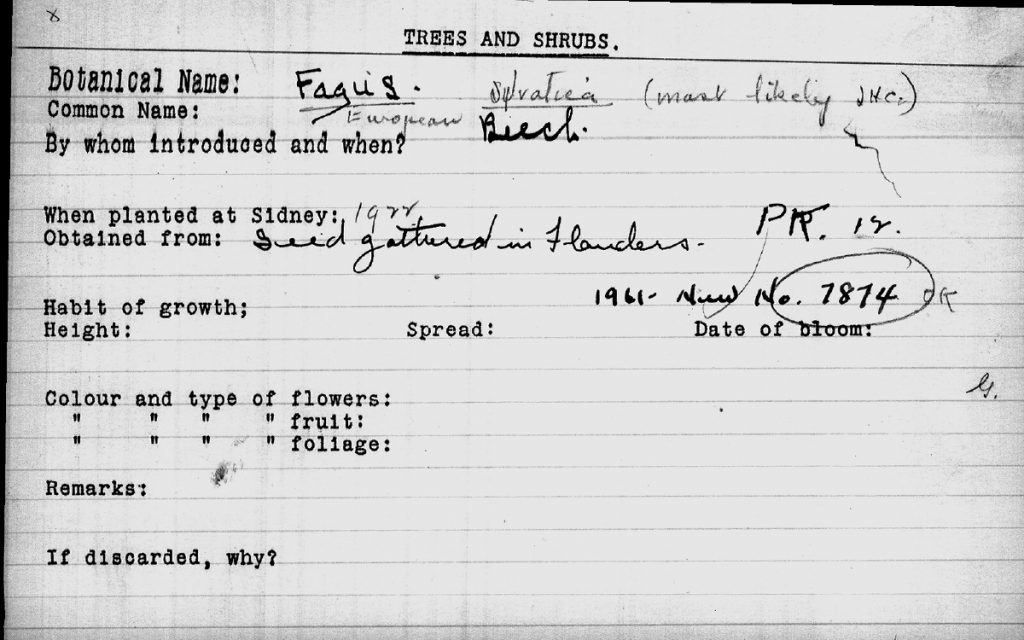 x
TREES AND SHRUBS.
Botanical Name: Fagus. sylvatica (most likely JHC.)
Common Name: European Beech.
By whom introduced and when?
When planted at Sidney: 1922
Obtained from: Seed gathered in Flanders.
PR. 12.
1961- New No. 7874 OK
Habit of growth;
Height: Spread: Date of bloom:
G.
Colour and type of flowers:
" " " " fruit:
" " " " foliage:
Remarks:
If discarded, why?